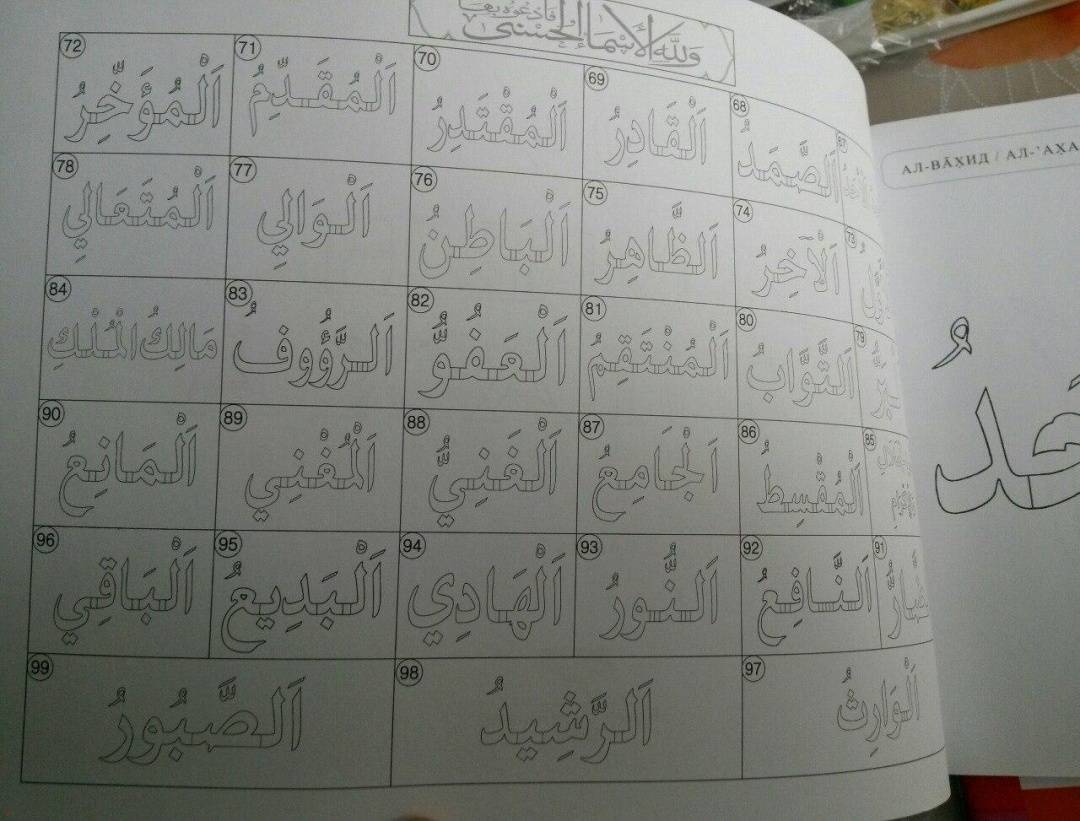 وَلِلَّهِ الْأَسْمَاءُ الْحُسْنَى فَادْعُوهُ بِهَا
68 اَلصَّمَدُ
69 اَلْقَادِرُ
70 اَلْمُقْتَدِرُ
71 اَلْمُقَدِّمُ
72 اَلْمُؤَخِّرُ
73
74 اَلْآخِرُ
75 اَلظَّاهِرُ
76 اَلْبَاطِنُ
77 اَلْوَالِي
78 اَلْمُتَعَالِي
79
80 اَلتَّوَّابُ
81 اَلْمُنْتَقِمُ
82 اَلْعَفُوُّ
83 اَلرَّؤُوفُ
84 مَالِكُ الْمُلْكِ
85
86 اَلْمُقْسِطُ
87 اَلْجَامِعُ
88 اَلْغَنِيُّ
89 اَلْمُغْنِي
90 اَلْمَانِعُ
91
92 اَلنَّافِعُ
93 اَلنُّورُ
94 اَلْهَادِي
95 اَلْبَدِيعُ
96 اَلْبَاقِي
97 اَلْوَارِثُ
98 اَلرَّشِيدُ
99 اَلصَّبُورُ
АЛ-ВĀХ̣ИД / АЛ-’АХ̣А